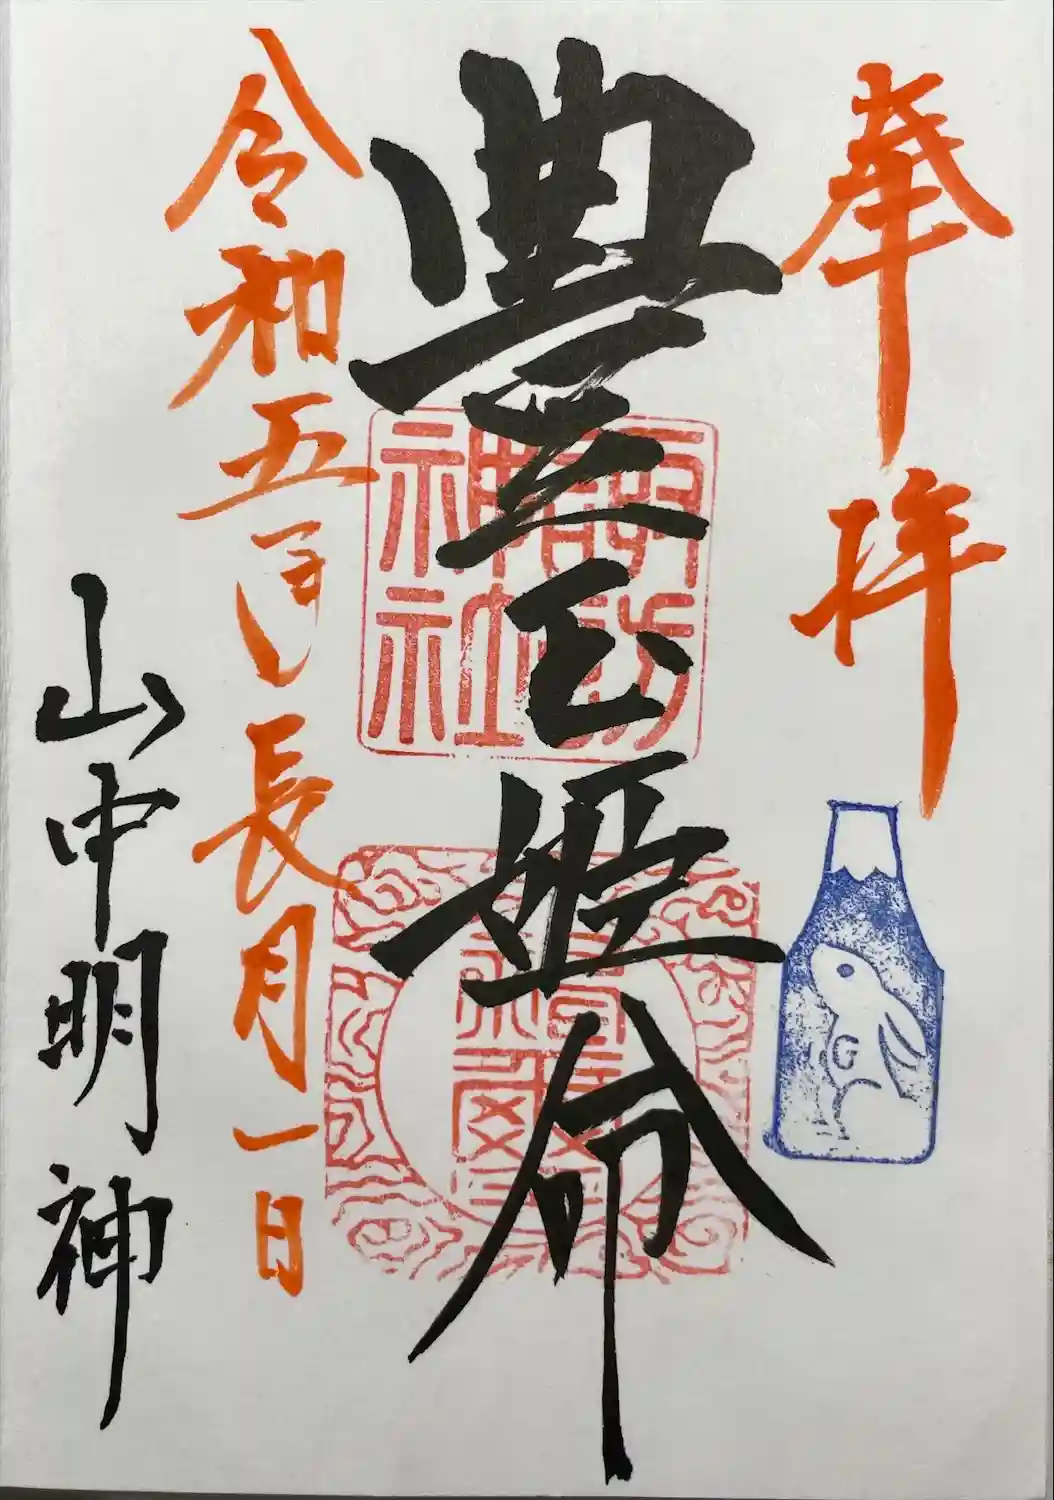 奉拝
豊玉姫命
令和五年長月一日
山中明神
神社
G